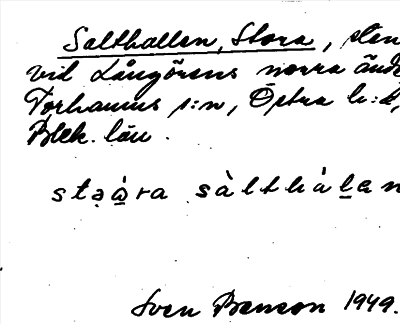 Salthallen, Stora, sten
vid Långörens norra ände
Torhamns s:n, Östra h:d,
Blek. län.
staȧra sàlthálen
Sven Benson 1949.